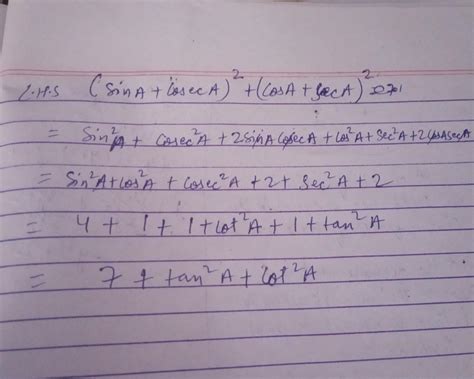 L.H.S (SinA + CosecA)² + (CosA + SecA)²
= Sin²A + Cosec²A + 2SinA CosecA + Cos²A + Sec²A + 2CosASecA
= Sin²A + Cos²A + Cosec²A + 2 + Sec²A + 2
= 4 + 1 + 1 + Cot²A + 1 + tan²A
= 7 + tan²A + Cot²A